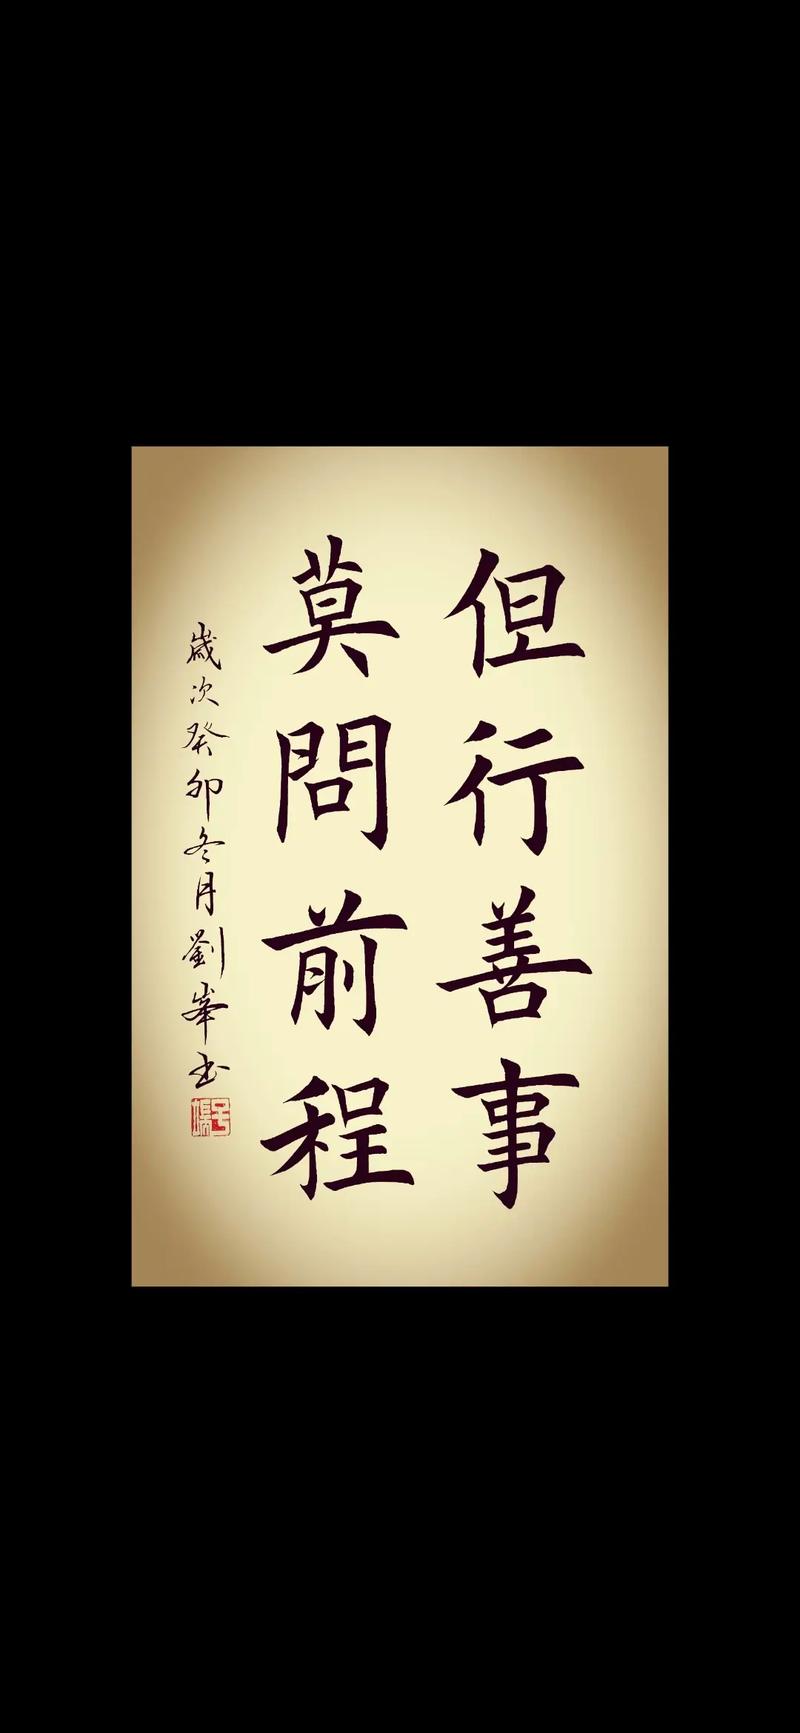 但行善事
莫問前程
歲次癸卯冬月劉峯书